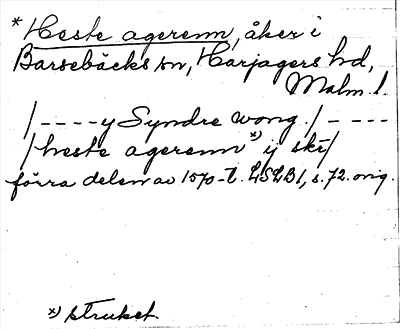 * Heste agerenn, åker i
Barsebäcks sn, Harjagers hd,
Malm. l.
/ - - - - y Syndre wong. / - - - -
/ heste agerenn *) ij ski /
förra delen av 1570-t. LSLB1, s. 72. orig.
*) struket.